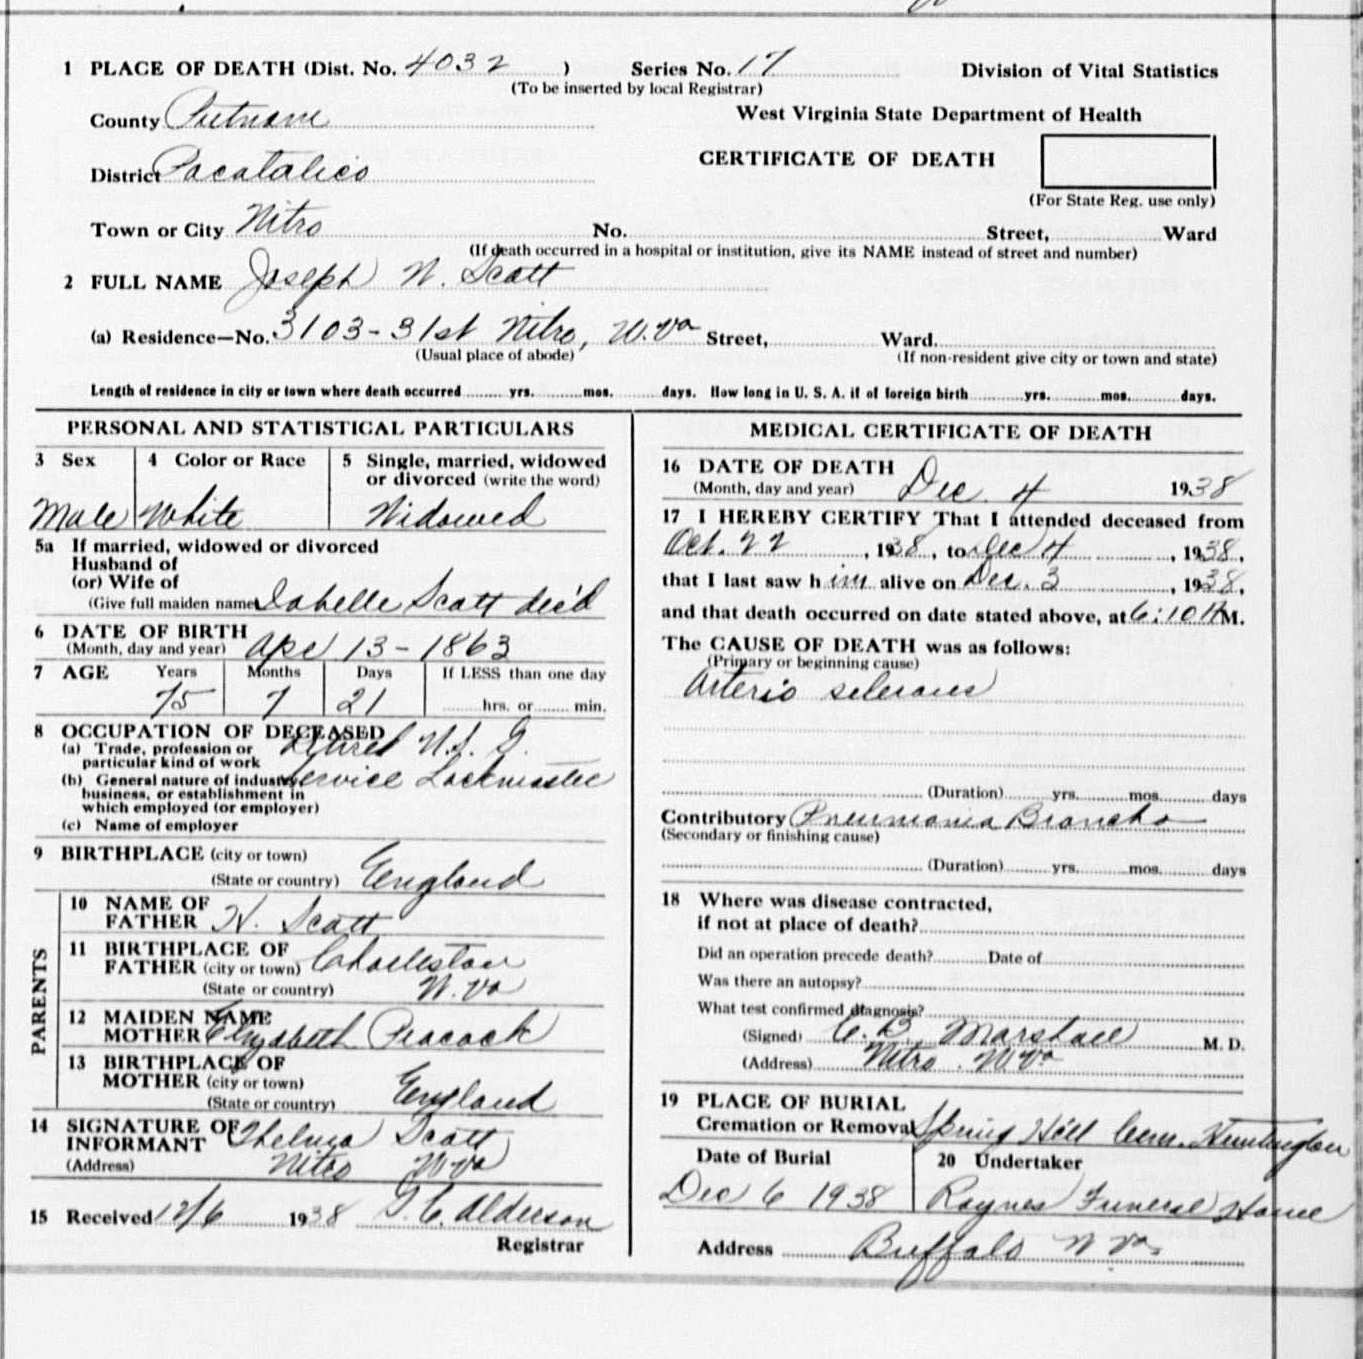 1 PLACE OF DEATH (Dist. No. 4032 ) Series No. 17 Division of Vital Statistics
(To be inserted by local Registrar)
County Putnam West Virginia State Department of Health
District Pocatalico CERTIFICATE OF DEATH
(For State Reg. use only)
Town or City Nitro No. Street, Ward
(If death occurred in a hospital or institution, give its NAME instead of street and number)
2 FULL NAME Joseph W. Scott
(a) Residence—No. 3103-31st Nitro, W.Va Street, Ward.
(Usual place of abode) (If non-resident give city or town and state)
Length of residence in city or town where death occurred yrs. mos. days. How long in U. S. A. if of foreign birth yrs. mos. days.
PERSONAL AND STATISTICAL PARTICULARS
3 Sex 4 Color or Race 5 Single, married, widowed
or divorced (write the word)
Male White Widowed
5a If married, widowed or divorced
Husband of
(or) Wife of
(Give full maiden name) Isabelle Scott dec'd
6 DATE OF BIRTH
(Month, day and year) Apr 13-1863
7 AGE Years Months Days If LESS than one day
75 7 21 hrs. or min.
8 OCCUPATION OF DECEASED
(a) Trade, profession or Retired U.S. G.
particular kind of work
(b) General nature of industry, Service Lockmaster
business, or establishment in
which employed (or employer)
(c) Name of employer
9 BIRTHPLACE (city or town)
(State or country) England
PARENTS
10 NAME OF
FATHER Scott
11 BIRTHPLACE OF
FATHER (city or town) Charleston
(State or country) W.Va
12 MAIDEN NAME
MOTHER Elizabeth Peacock
13 BIRTHPLACE OF
MOTHER (city or town)
(State or country) England
14 SIGNATURE OF
INFORMANT Thelma Scott
(Address) Nitro W Va
15 Received 12/6 1938 Alderson
Registrar
MEDICAL CERTIFICATE OF DEATH
16 DATE OF DEATH
(Month, day and year) Dec. 4 1938
17 I HEREBY CERTIFY That I attended deceased from
Oct. 22, 1938, to Dec 4, 1938,
that I last saw him alive on Dec. 3, 1938,
and that death occurred on date stated above, at 6:10 M.
The CAUSE OF DEATH was as follows:
(Primary or beginning cause)
Arterio sclerosis
(Duration) yrs. mos. days
Contributory Pneumonia Broncho
(Secondary or finishing cause)
(Duration) yrs. mos. days
18 Where was disease contracted,
if not at place of death?
Did an operation precede death? Date of
Was there an autopsy?
What test confirmed diagnosis?
(Signed) C. B. Marshall M. D.
(Address) Nitro. W Va
19 PLACE OF BURIAL
Cremation or Removal Spring Hill Cem. Huntington
Date of Burial 20 Undertaker
Dec 6 1938 Raynes Funeral Home
Address Buffalo W Va.